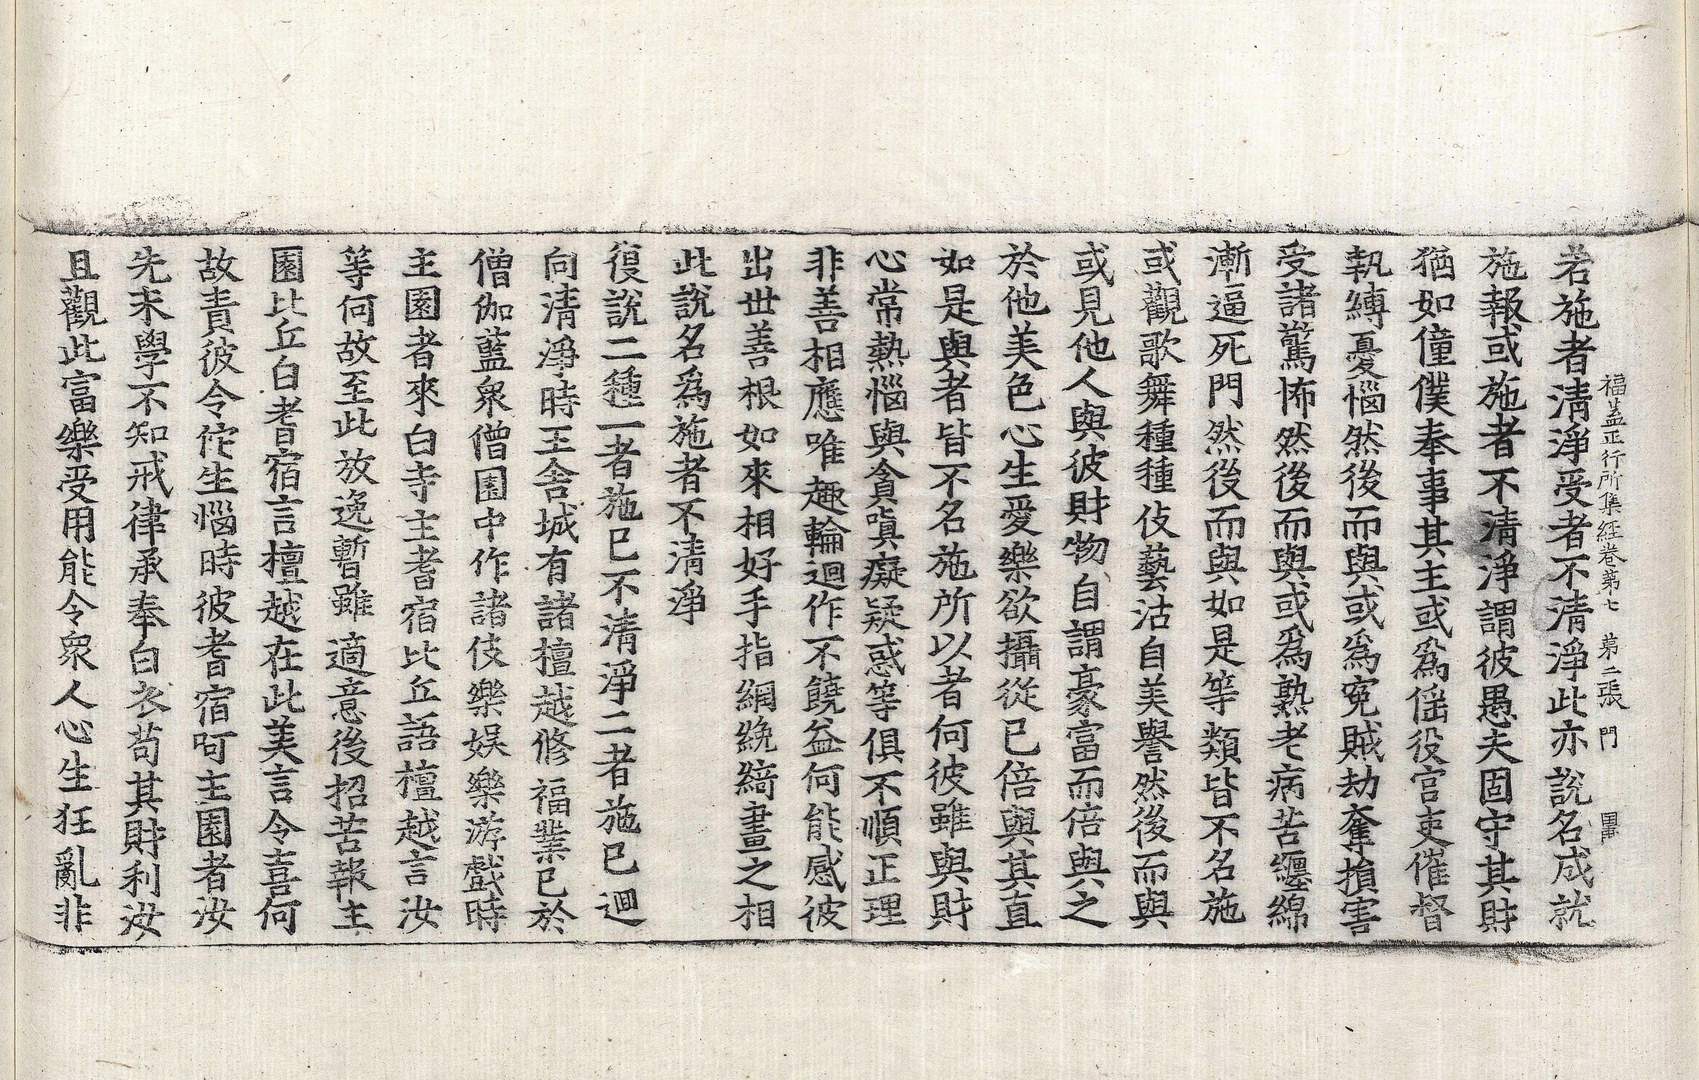 福盖正行所集經卷第七 第二張 門
若施者清淨受者不清淨此亦說名成就
施報或施者不清淨謂彼愚夫固守其財
猶如僮僕奉事其主或爲傜役官吏催督
執縛憂惱然後而與或爲寃賊劫奪損害
受諸驚怖然後而與或爲熟老病苦纏綿
漸逼死門然後而與如是等類皆不名施
或觀歌舞種種伎藝沽自美譽然後而與
或見他人與彼財物自謂豪富而倍與之
於他美色心生愛樂欲攝從已倍與其直
如是與者皆不名施所以者何彼雖與財
心常熱惱與貪嗔癡疑惑等俱不順正理
非善相應唯趣輪迴作不饒益何能感彼
出世善根如來相好手指網綩綺畫之相
此說名爲施者不清淨
復說二種一者施已不清淨二者施已迴
向清淨時王舍城有諸檀越修福業已於
僧伽藍衆僧園中作諸伎樂娛樂游戲時
主園者來白寺主耆宿比丘語檀越言汝
等何故至此放逸暫雖適意後招苦報主
園比丘白耆宿言檀越在此美言令喜何
故責彼令侘生惱時彼耆宿呵主園者汝
先未學不知戒律承奉白衣苟其財利汝
且觀此富樂受用能令衆人心生狂亂非